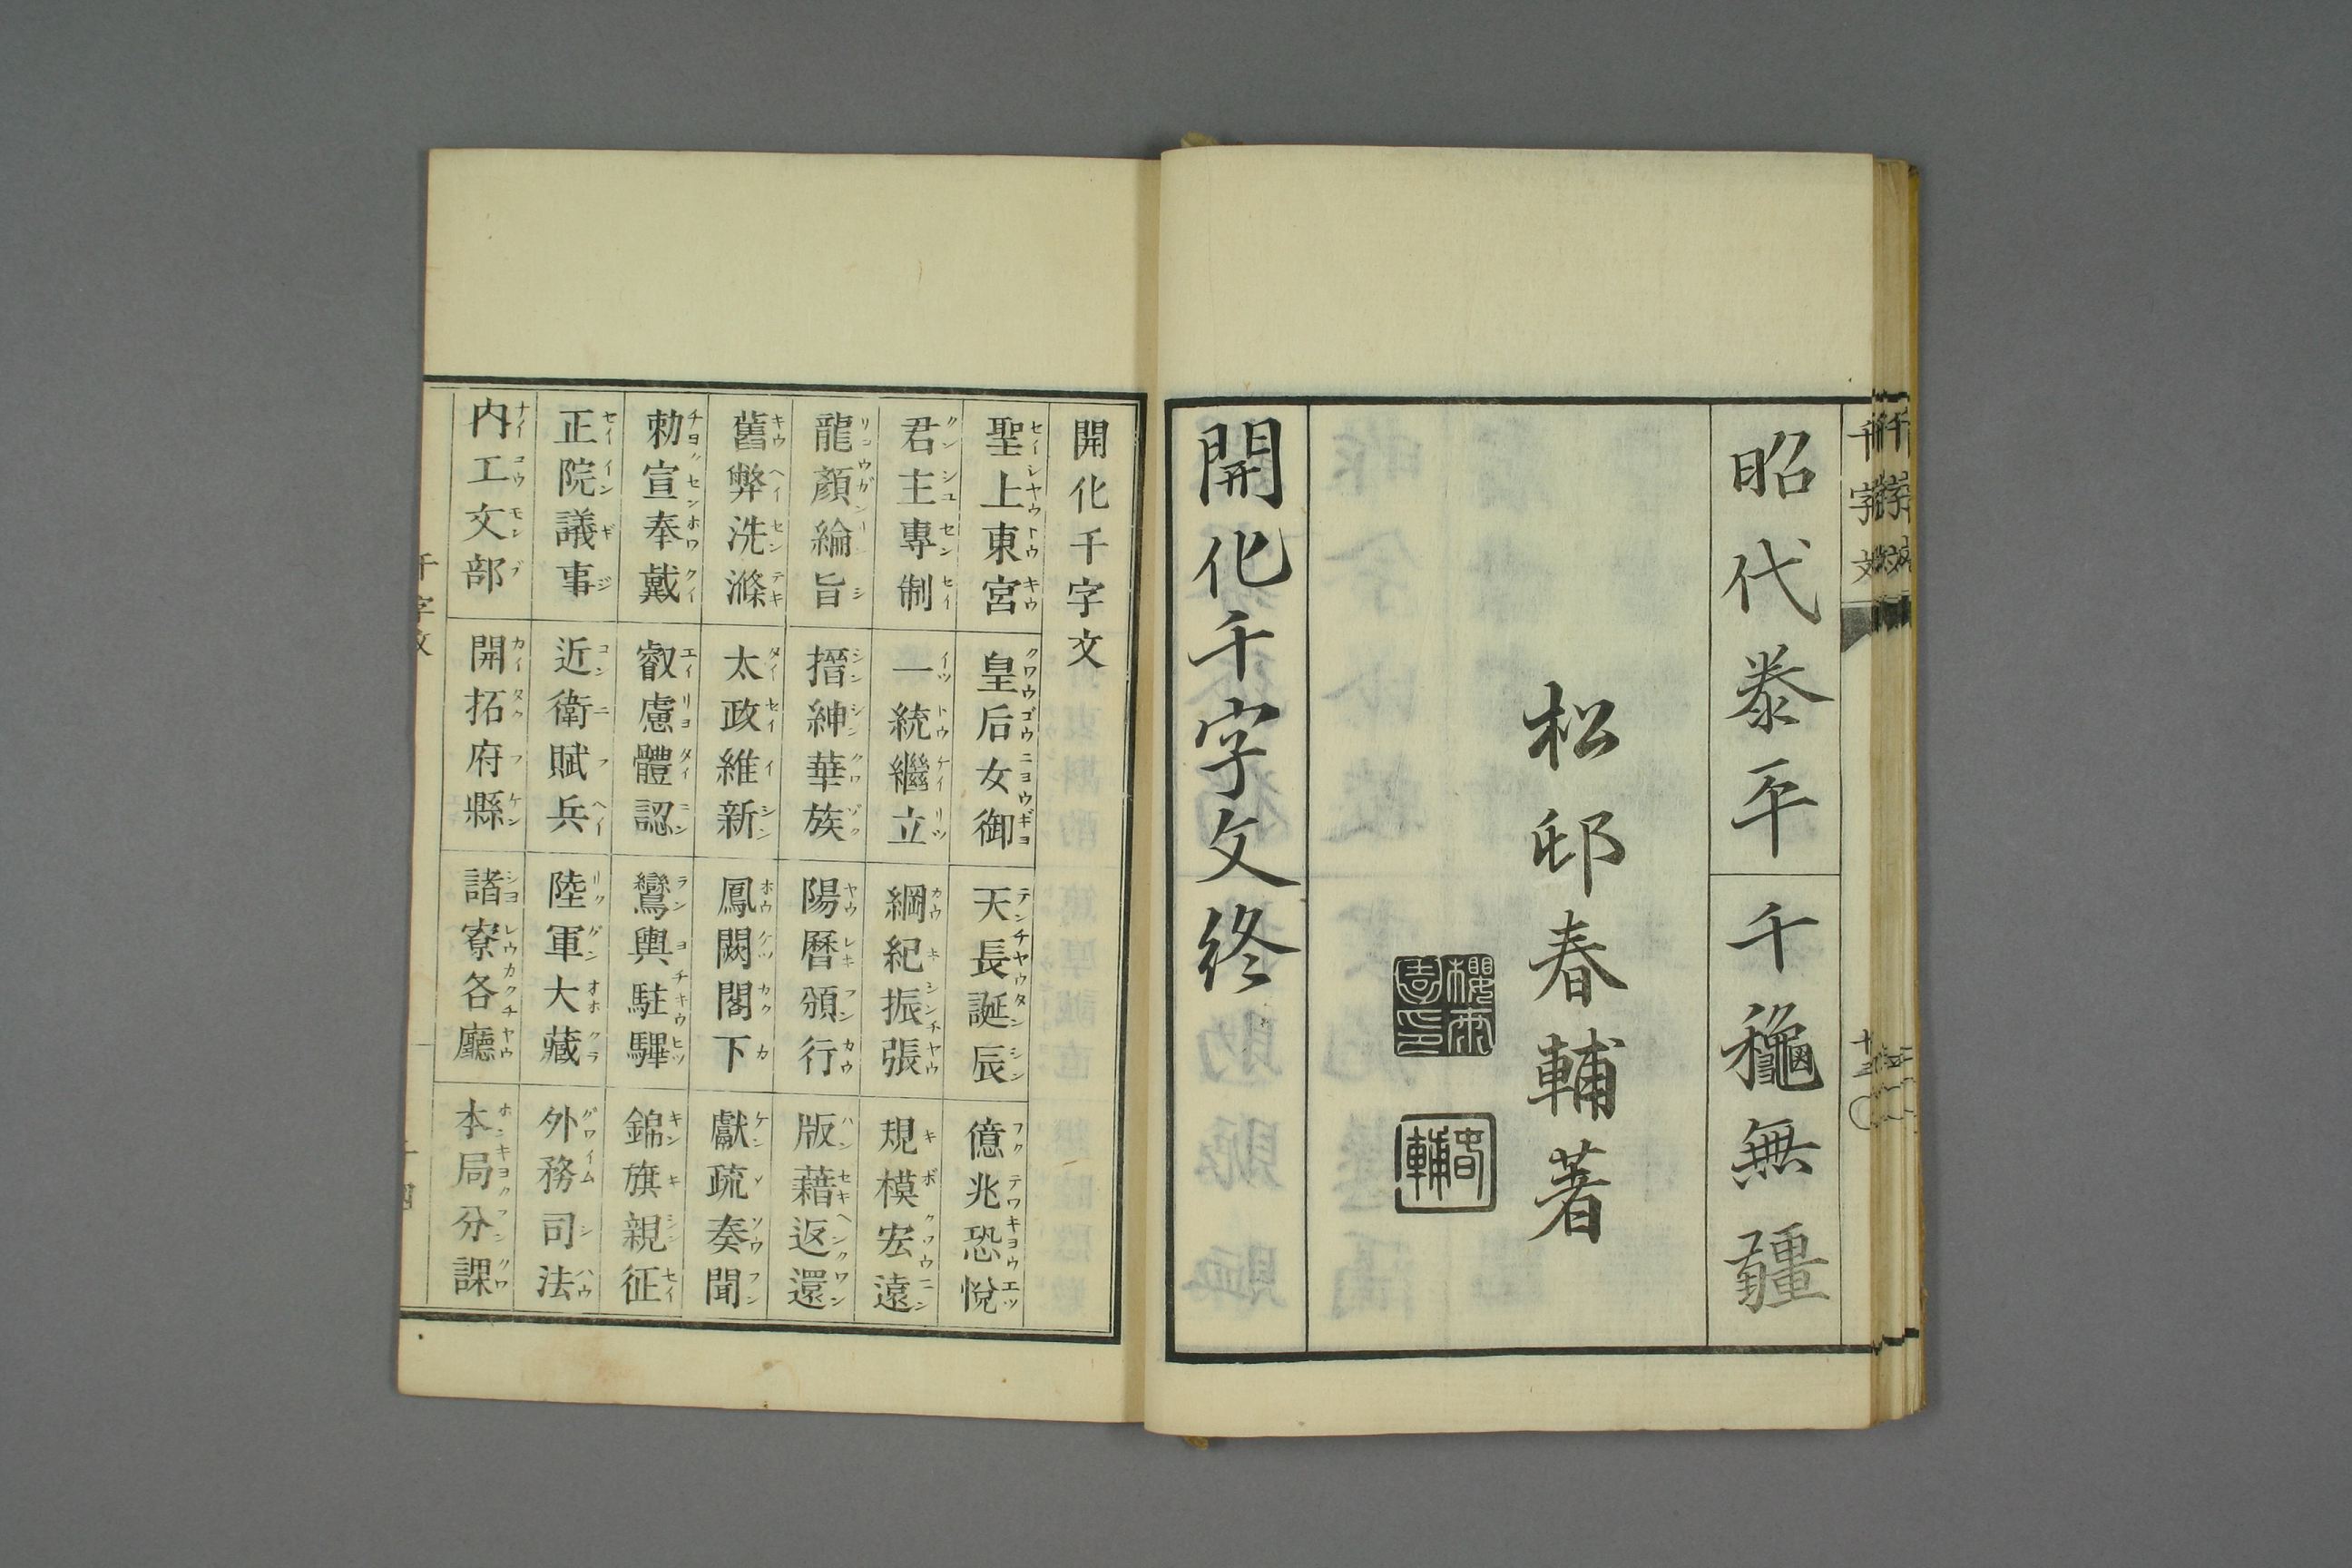 昭代泰平 千穐無疆
松邨春輔著
開化千字文終
開化千字文
聖上東宮 皇后女御 天長誕辰 億兆恐悅
君主專制 一統繼立 綱紀振張 規模宏遠
龍顏綸旨 搢紳華族 陽曆頒行 版藉返還
舊弊洗滌 太政維新 鳳闕閣下 獻疏奏聞
勅宣奉戴 叡慮體認 鸞輿駐驆 錦旗親征
正院議事 近衛賦兵 陸軍大藏 外務司法
内工文部 開拓府縣 諸寮各廳 本局分課